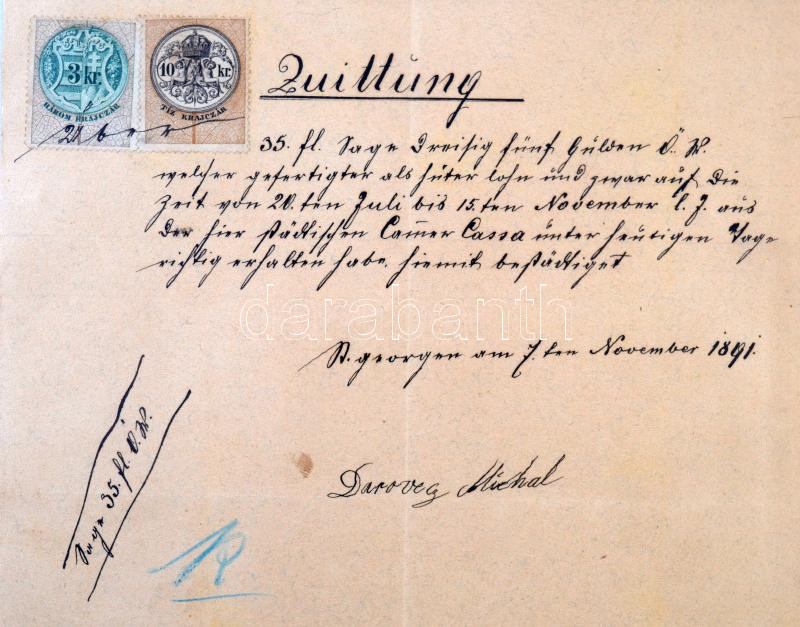 3 kr.
HÁROM KRAJCZÁR
10 kr.
TIZ KRAJCZÁR
Quittung
Über 35. fl. Sage Dreisig fünf Gulden Ö. W.
welcher gefertigter als hüter lohn und zwar auf Die
Zeit von 20.ten Juli bis 15.ten November l. J. aus
Der hier städtischen Cam̄er Cassa unter heutigen Tage
richtig erhalten habe, hiemit bestädtiget
darabanth
St. georgen am 7.ten November 1891.
Sage 35. fl. Ö. W.
Daroveg Michal